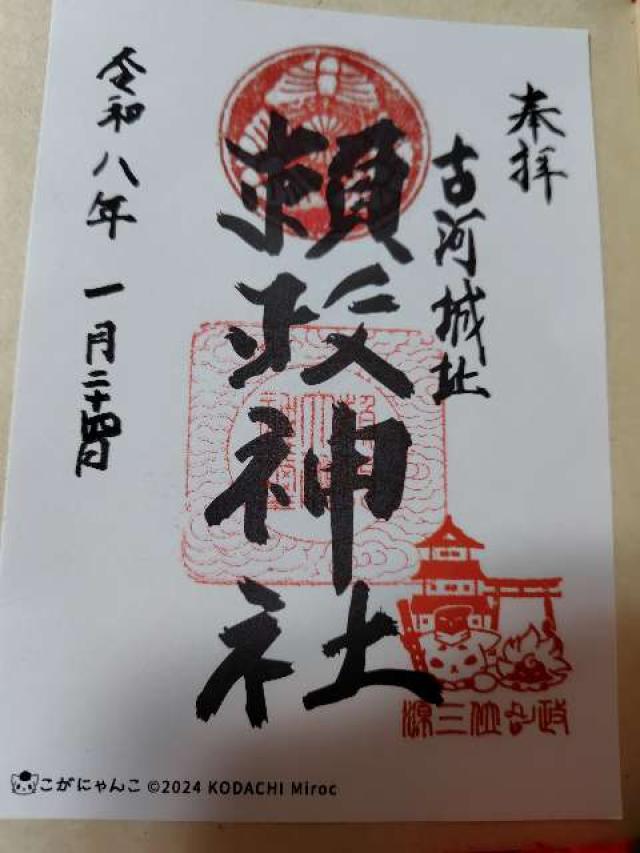 奉拝
古河城址
頼政神社
令和八年 一月二十四日
源三位頼政
こがにゃんこ ©2024 KODACHI Miroc